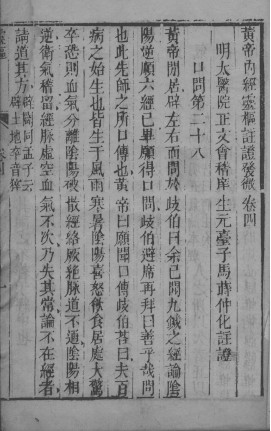 黃帝內經靈樞註證發微卷四
明太醫院正文會稽庠生元臺子馬蒔仲化註證
口問第二十八
黃帝閒居辟左右而問於岐伯曰余已聞九鍼之經論陰
陽逆順六經已畢願得口問岐伯避席再拜曰善乎哉問
也此先師之所口傳也黃帝曰願聞口傳岐伯荅曰夫百
病之始生也皆生于風雨寒暑陰陽喜怒飲食居處大驚
卒恐則血氣分離陰陽破散經絡厥絕脉道不通陰陽相
逆衛氣稽留經脉虛空血氣不次乃失其常論不在經者
請道其方
辟闢同孟子云
辟土地卒音猝